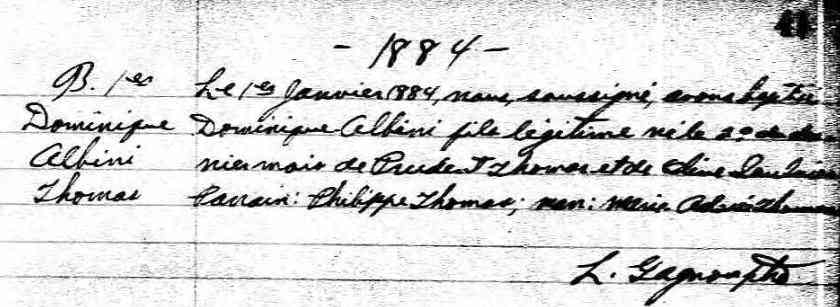 41
- 1884 -
B. 1er Le 1er Janvier 1884, nous, soussigné, avons baptisé
Dominique Dominique Albini fils légitime né le 20 du der
Albini nier mois de Prudent Thomas et de
Thomas Parrain: Philippe Thomas; mar: Marie Thomas
L. Gagnon ptre